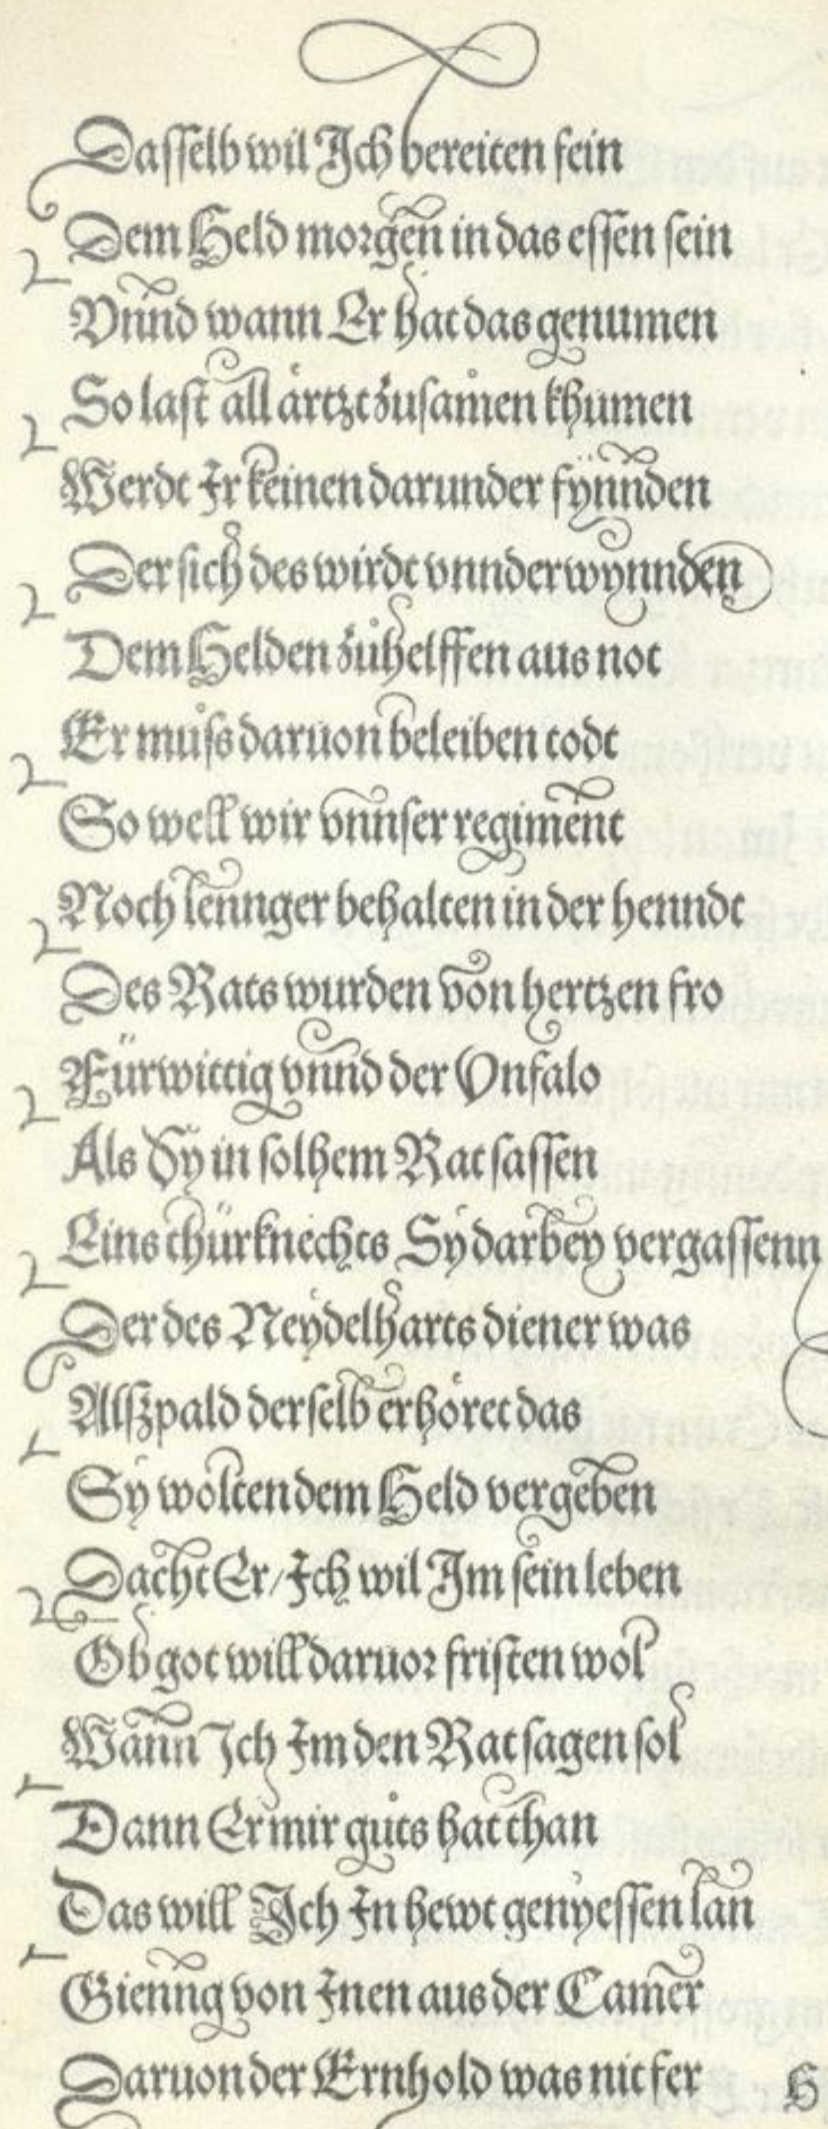 Dasſelb wil Ich bereiten fein
Dem Held morgen in das eſſen ſein
Vnnd wann Er hat das genumen
So laſt all ärtzt zuſamen khumen
Werdt Ir keinen darunder fynnden
Der ſich des wirdt vnnderwynnden
Dem Helden zůhelffen aus not
Er můſs daruon beleiben todt
So well wir vnnſer regiment
Noch lennger behalten in der henndt
Des Rats wurden von hertzen fro
Fürwittig vnnd der Vnfalo
Als Sÿ in ſolhem Rat ſaſſen
Eins thürknechts Sÿ darbey vergaſſenn
Der des Neÿdelharts diener was
Alſzpald derſelb erhöret das
Sÿ wolten dem Held vergeben
Dacht Er/ Ich wil Im ſein leben
Ob got will daruor friſten wol
Wann Ich Im den Rat ſagen ſol
Dann Er mir gůts hat than
Das will Ich In hewt genyeſſen lan
Gienng von Inen aus der Camer
Daruon der Ernhold was nit fer